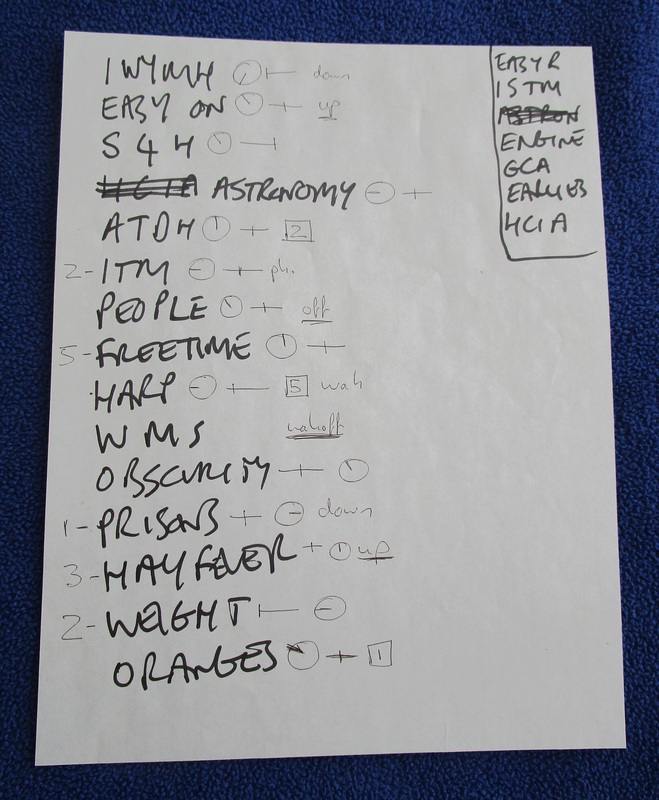 IWYMH down
EASY ON up
S 4 H
ASTRONOMY
ATDH 2
2- ITM ph.
PEOPLE off
5- FREETIME
HARP 5 wah
WMS wahoff
OBSCURITY
1- PRISONS down
3- HAYFEVER up
2- WEIGHT
ORANGES 1
EASY R
ISTM
ASTRON
ENGINE
GCA
EARLIES
HCIA